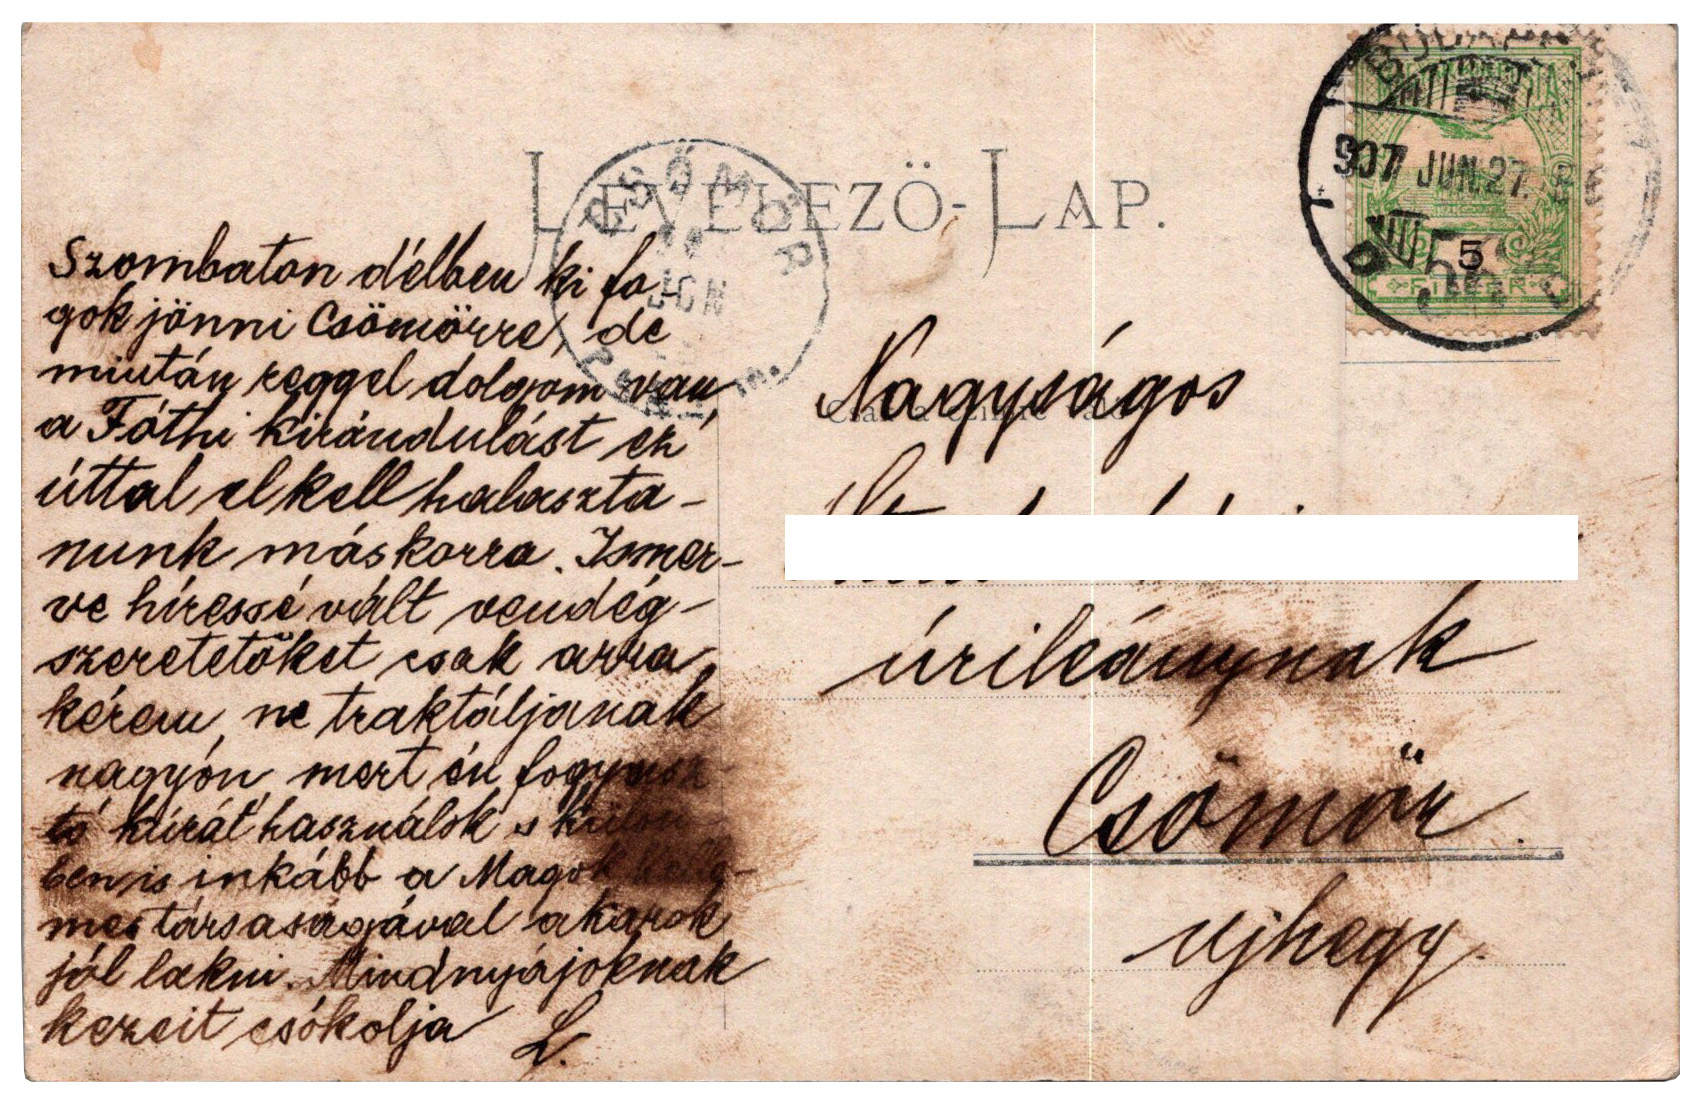 LEVELEZŐ-LAP.
Szombaton délben ki fo-
gok jönni Csömörre, de
miután reggel dolgom van,
a Fóthi kirándulást ez
úttal el kell halaszta-
nunk máskorra. Ismer-
ve híressé vált vendég-
szeretetőket csak arra
kérem, ne traktáljanak
nagyón, mert én fogyasz-
tó kúrát használok s külön-
ben is inkább a Magok kelle-
mes társaságával akarok
jól lakni. Mindnyájoknak
kezeit csókolja
L.
907 JUN. 27.
5
FILLÉR
CSÖMÖR
JUN
Nagyságos
úrileánynak
Csömör.
ujhegy.